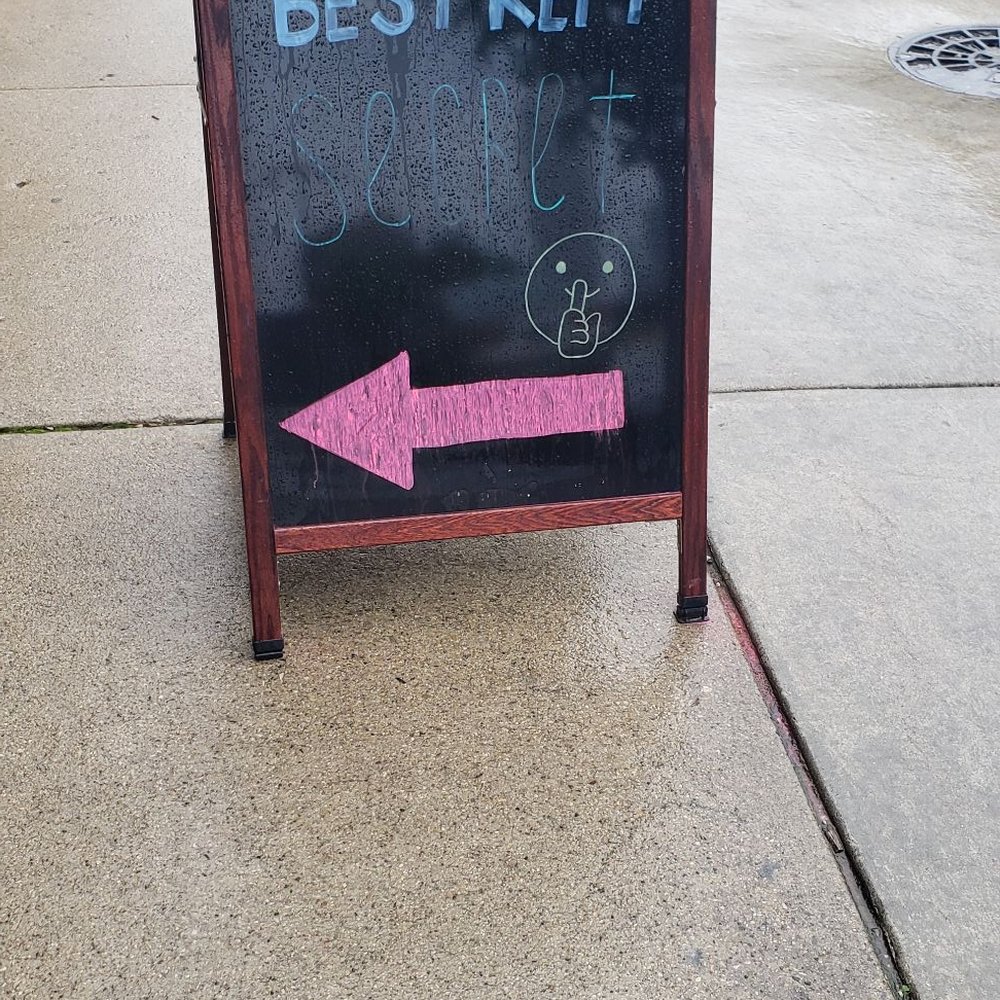 BEST KEPT
SecRet